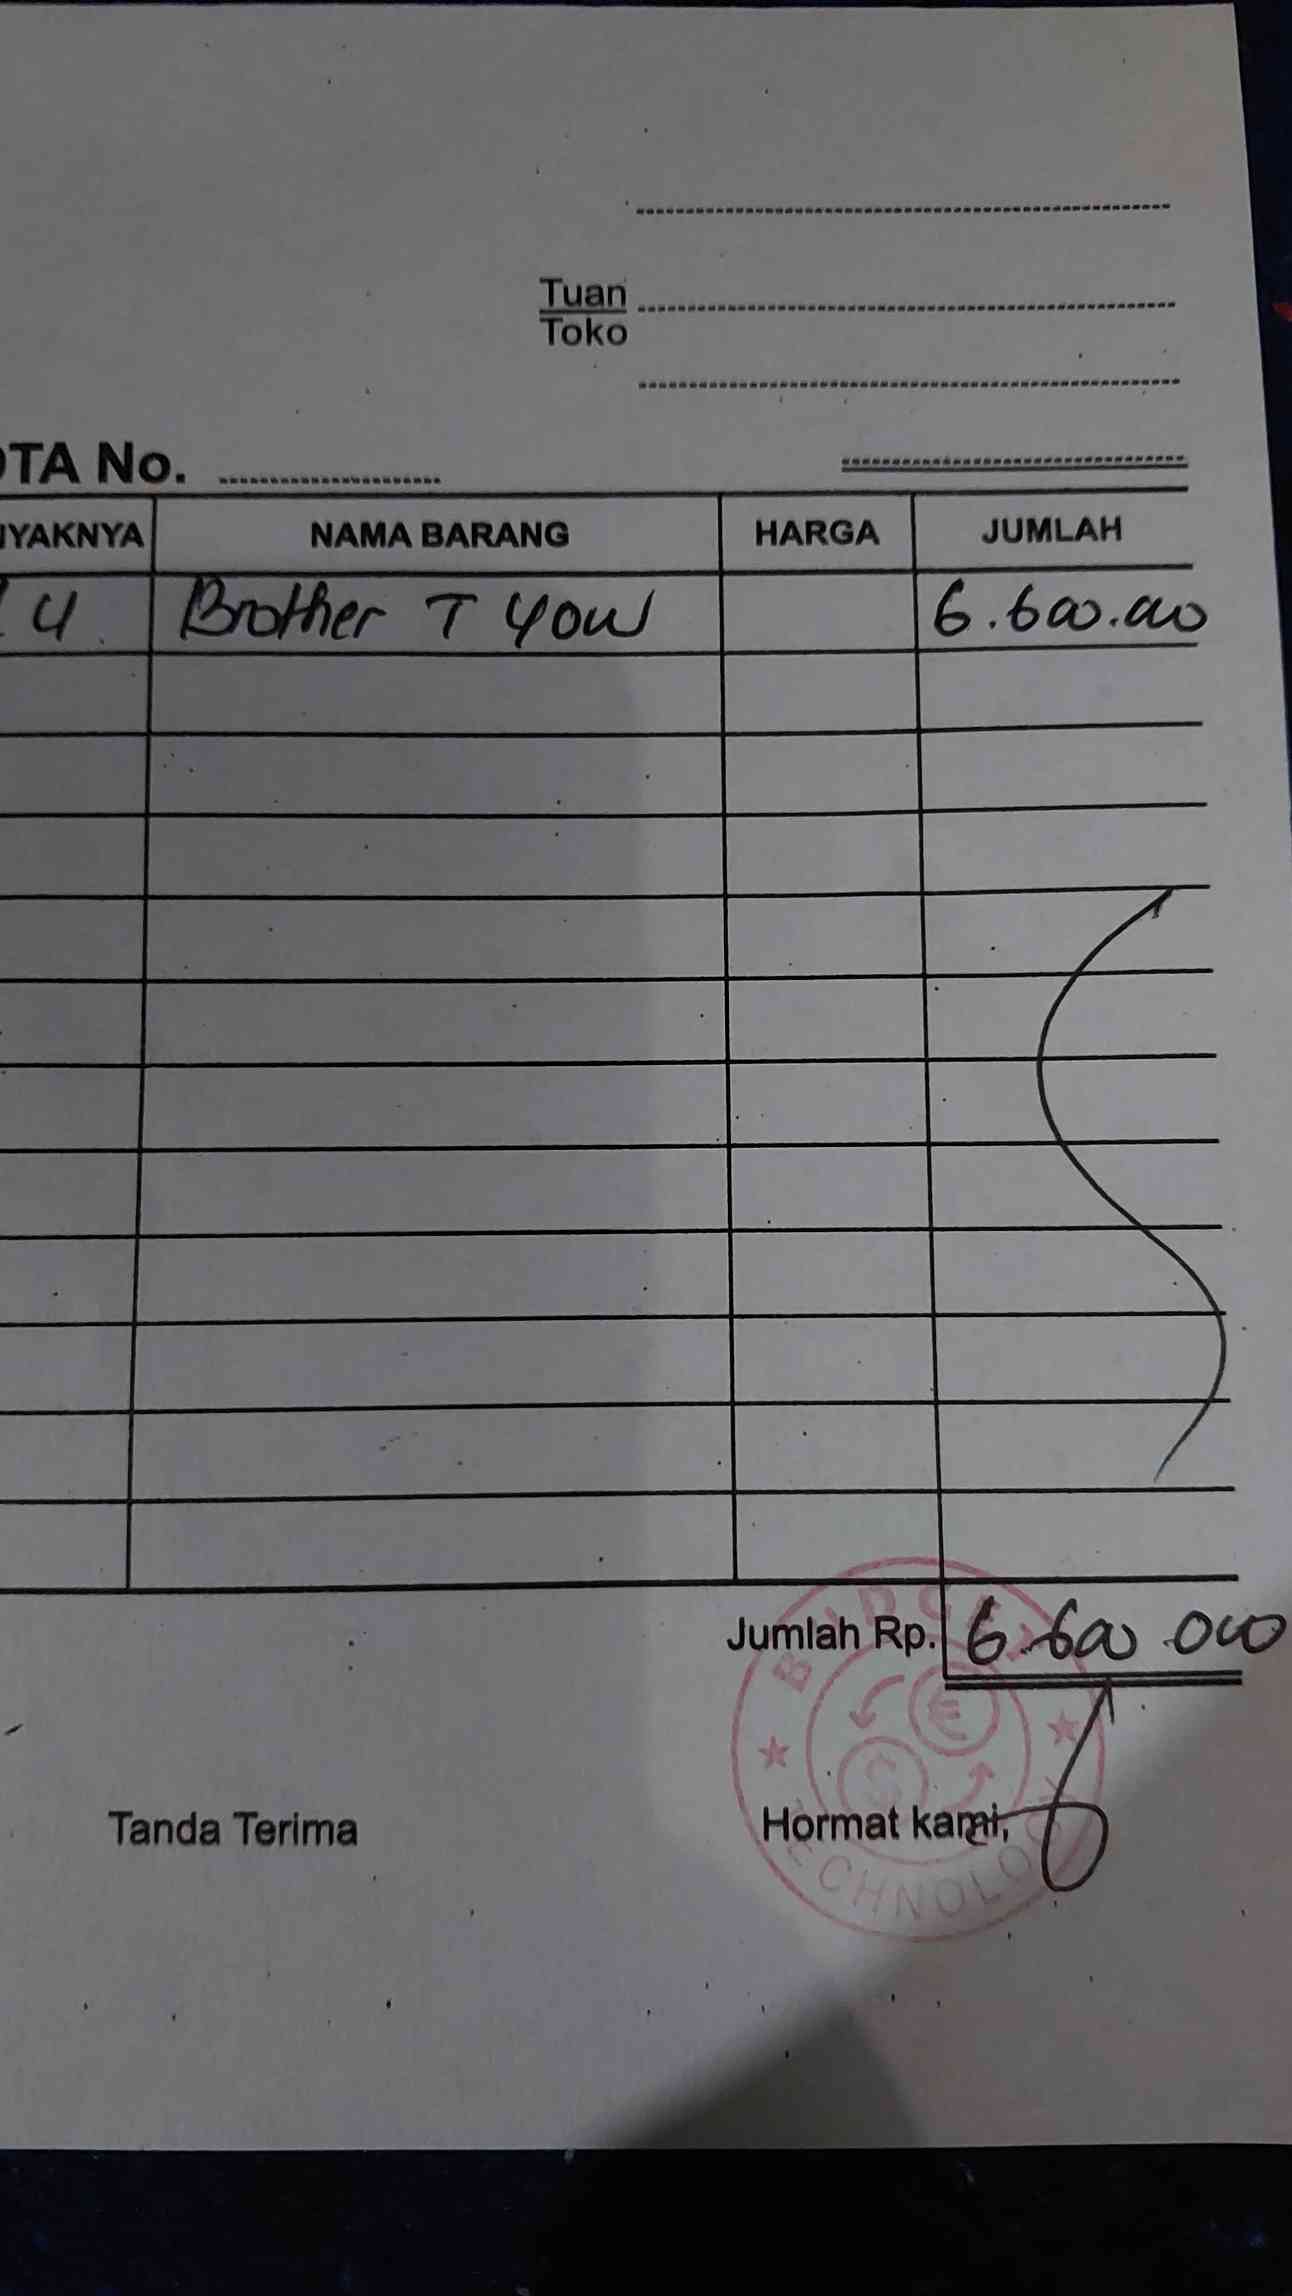 Tuan
Toko
OTA No.
NYAKNYA NAMA BARANG HARGA JUMLAH
4 Brother T 40W 6.600.000
Jumlah Rp. 6.600.000
Tanda Terima Hormat kami,